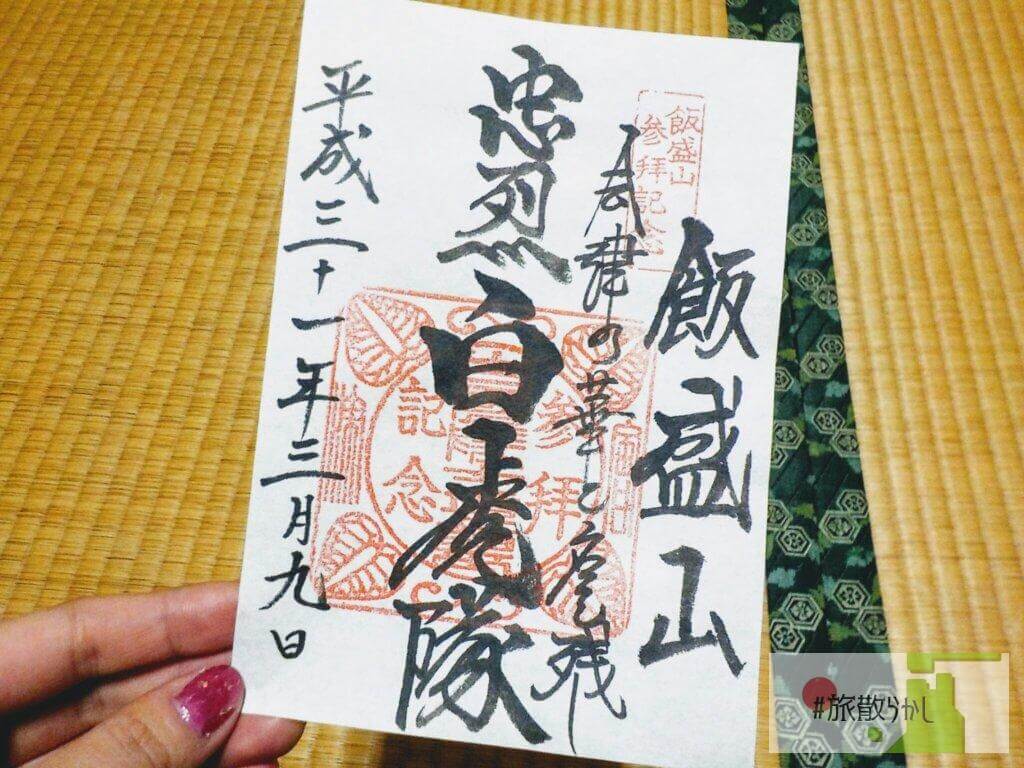 飯盛山
飯盛山
参拝記念
会津の華と
忠烈
白虎隊
参拝
記念
平成三十一年三月九日
#旅散らかし